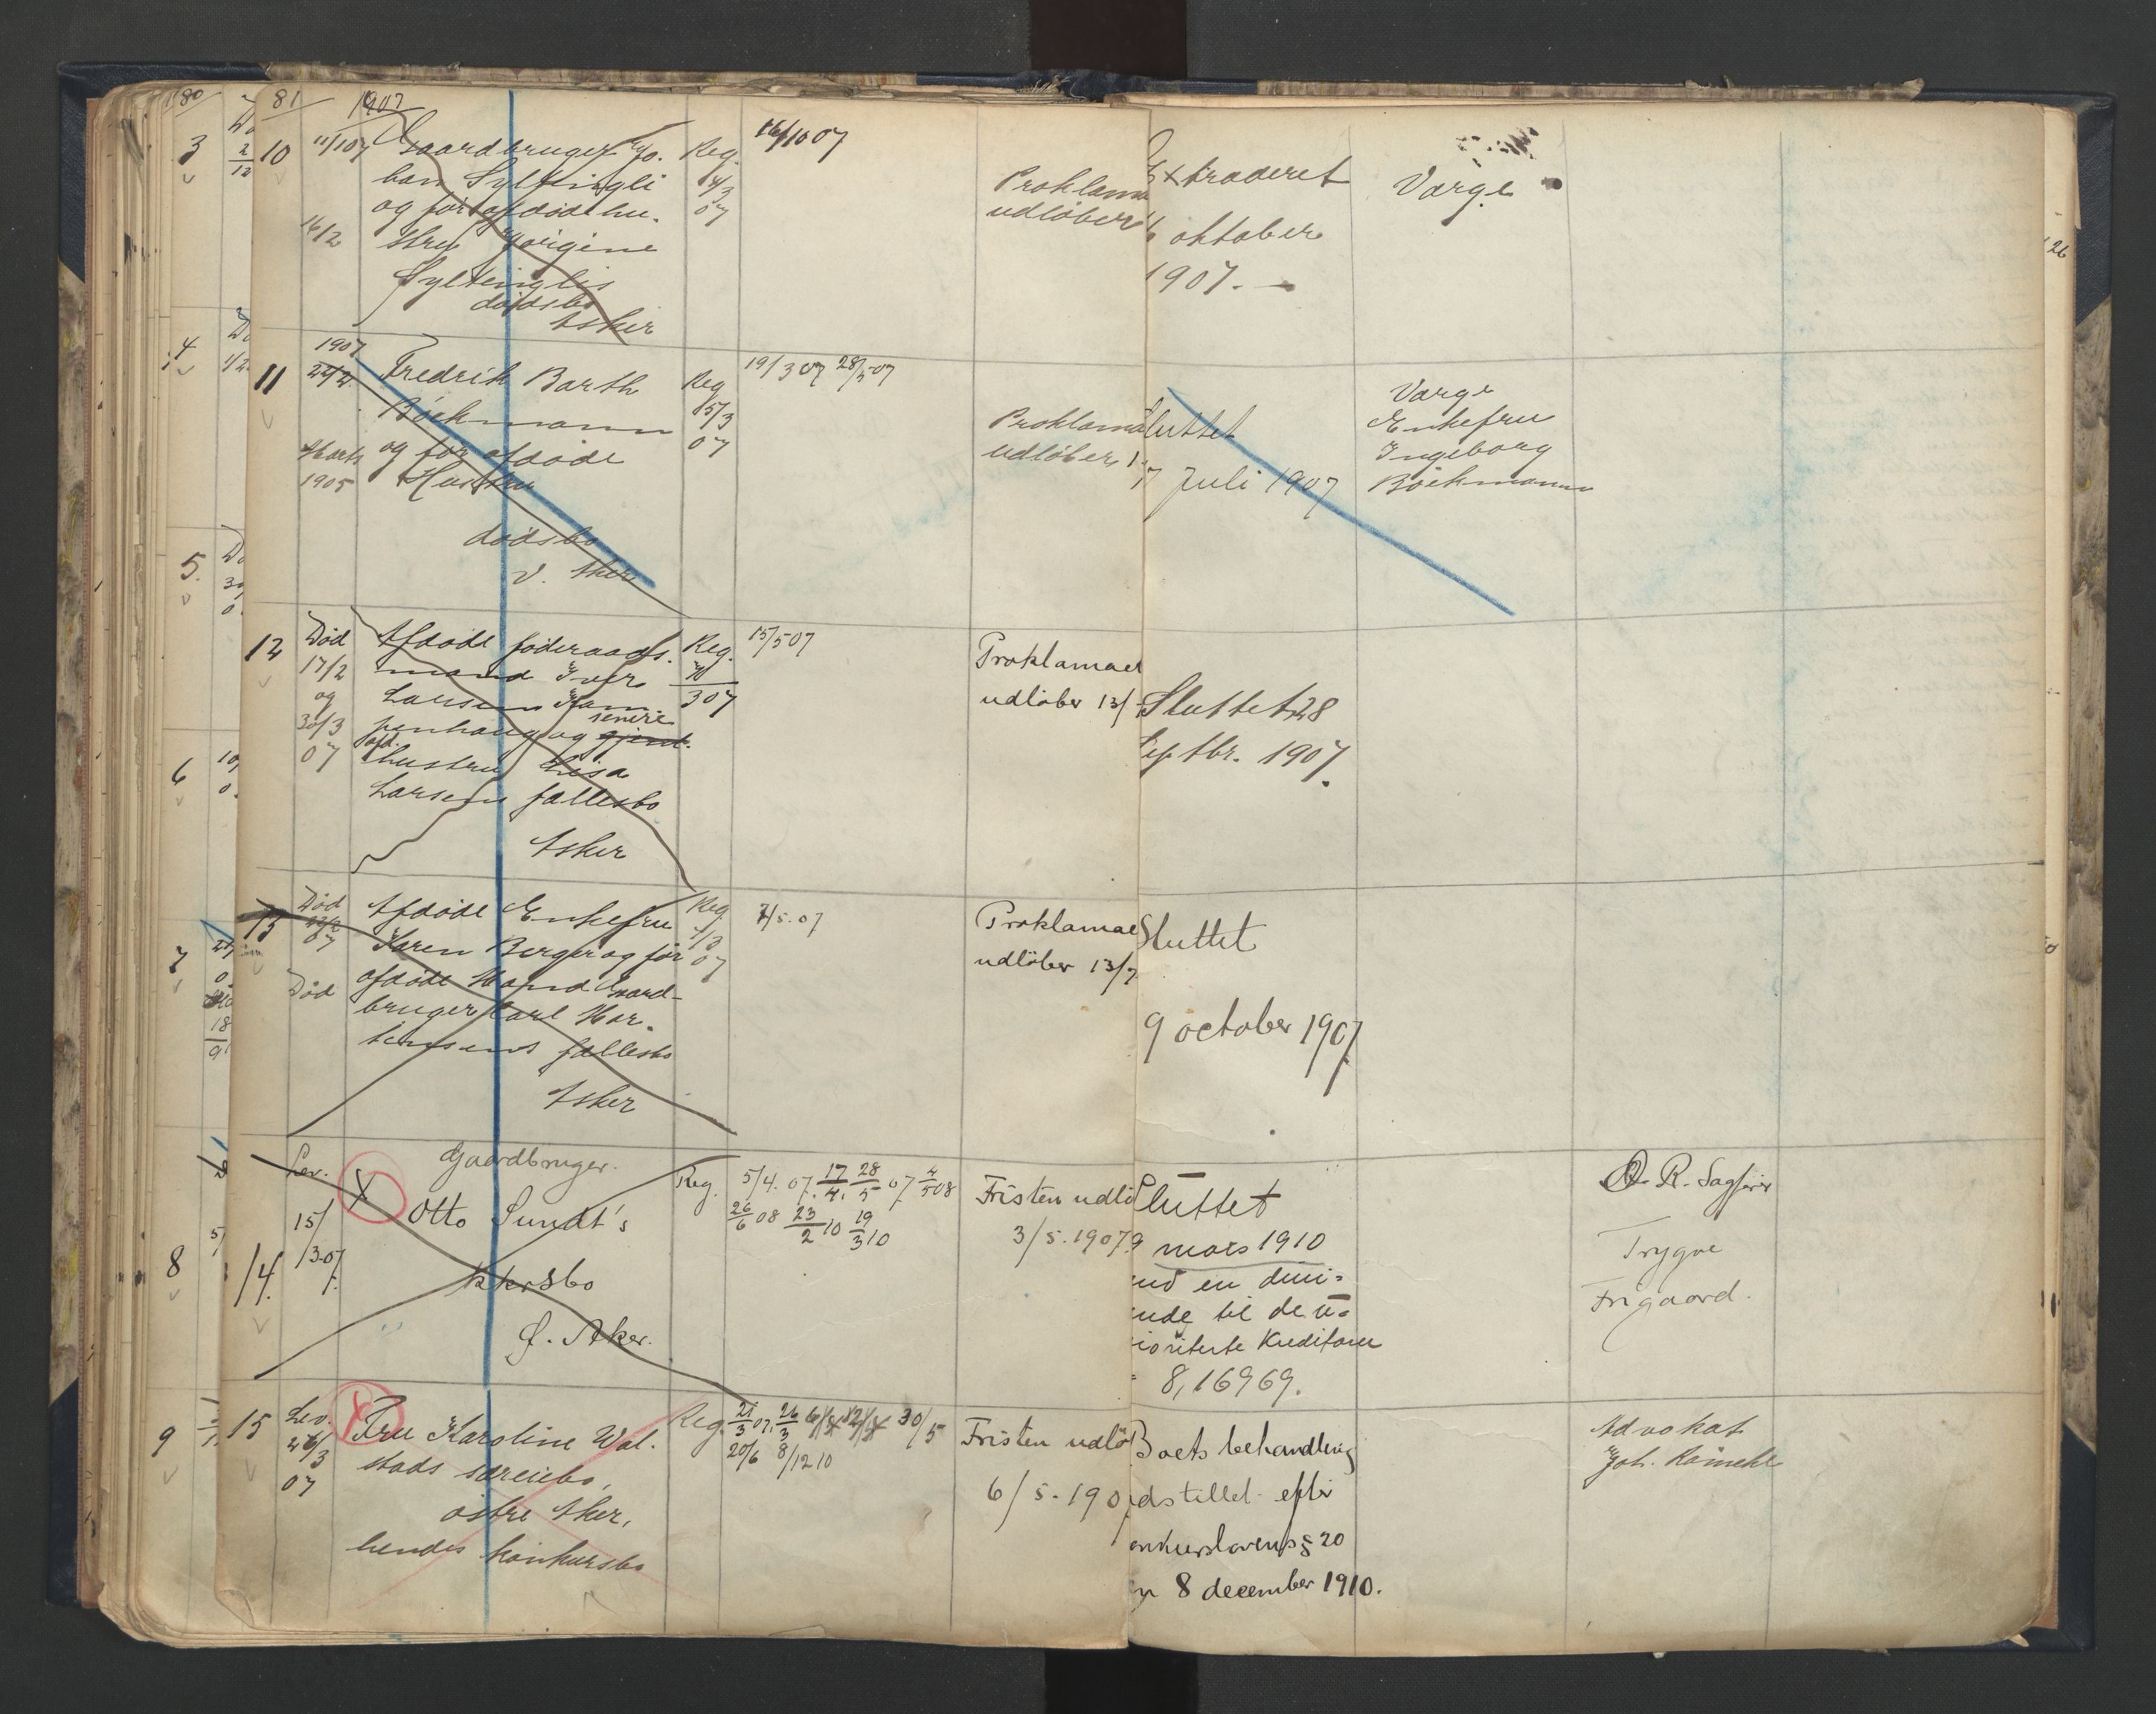 81
1907
10
11/1 07
Gaardbruger Jo-
han Syltingli
og før afdøde hu-
stru Jørgine
Syltinglis
dødsbo
Asker
16/2
Reg.
14/3
07
16/10 07
Proklama
udløber
Extraderet
oktober
1907.
Varge
11
1907
24/2
Fredrik Barth
Böckmann
og før afdøde
Hustru
dødsbo
V. Aker
Marts
1905
Reg
15/3
07
19/3 07 28/5 07
Proklama
udløber
luttet
7 Juli 1907
Varge
Enkefru
Ingeborg
Böckmann
12
Død
17/2
og
30/3
07
Afdøde føderaads-
mand Iver
Larsens
penhaug og senere
afd.
hustru Lisa
Larsens fællesbo
Asker
Reg.
3 07
15/5 07
Proklamaet
udløber 13/
Sluttet 28
septbr. 1907.
13
Død
07
Død
Afdøde Enkefru
Karen Berger og før
afdøde Mand Gaard-
bruger Carl Mor-
tensens fællesbo
Asker
Reg.
07
7/5.07
Proklamaet
udløber 13/7
Sluttet
9 october 1907.
14.
Lev.
15/
/3.07.
Gaardbruger.
X
Otto Sundt's
kkrsbo
Ø. Aker.
Reg.
5/4.07. 17/4. 28/5 07. 4/5 08
26/6 08 23/2 10 19/3 10
Fristen udlø
3/5.1907
Sluttet
9 mars 1910
ud en divi-
ende til de u-
ioriterte Kreditorer
8,16969.
O. R. Sagfører
Trygve
Frigaard.
15
Lev.
26/3
07
X
Fru Karoline Wal-
stads særeiebo,
østre Aker,
hendes konkursbo
Reg.
21/3 07, 26/3 30/5
20/6 8/12 10
Fristen udlø
6/5.190
Boets behandling
dstillet efter
onkurslovens § 20
n 8 december 1910.
Advokat
Joh. Römcke